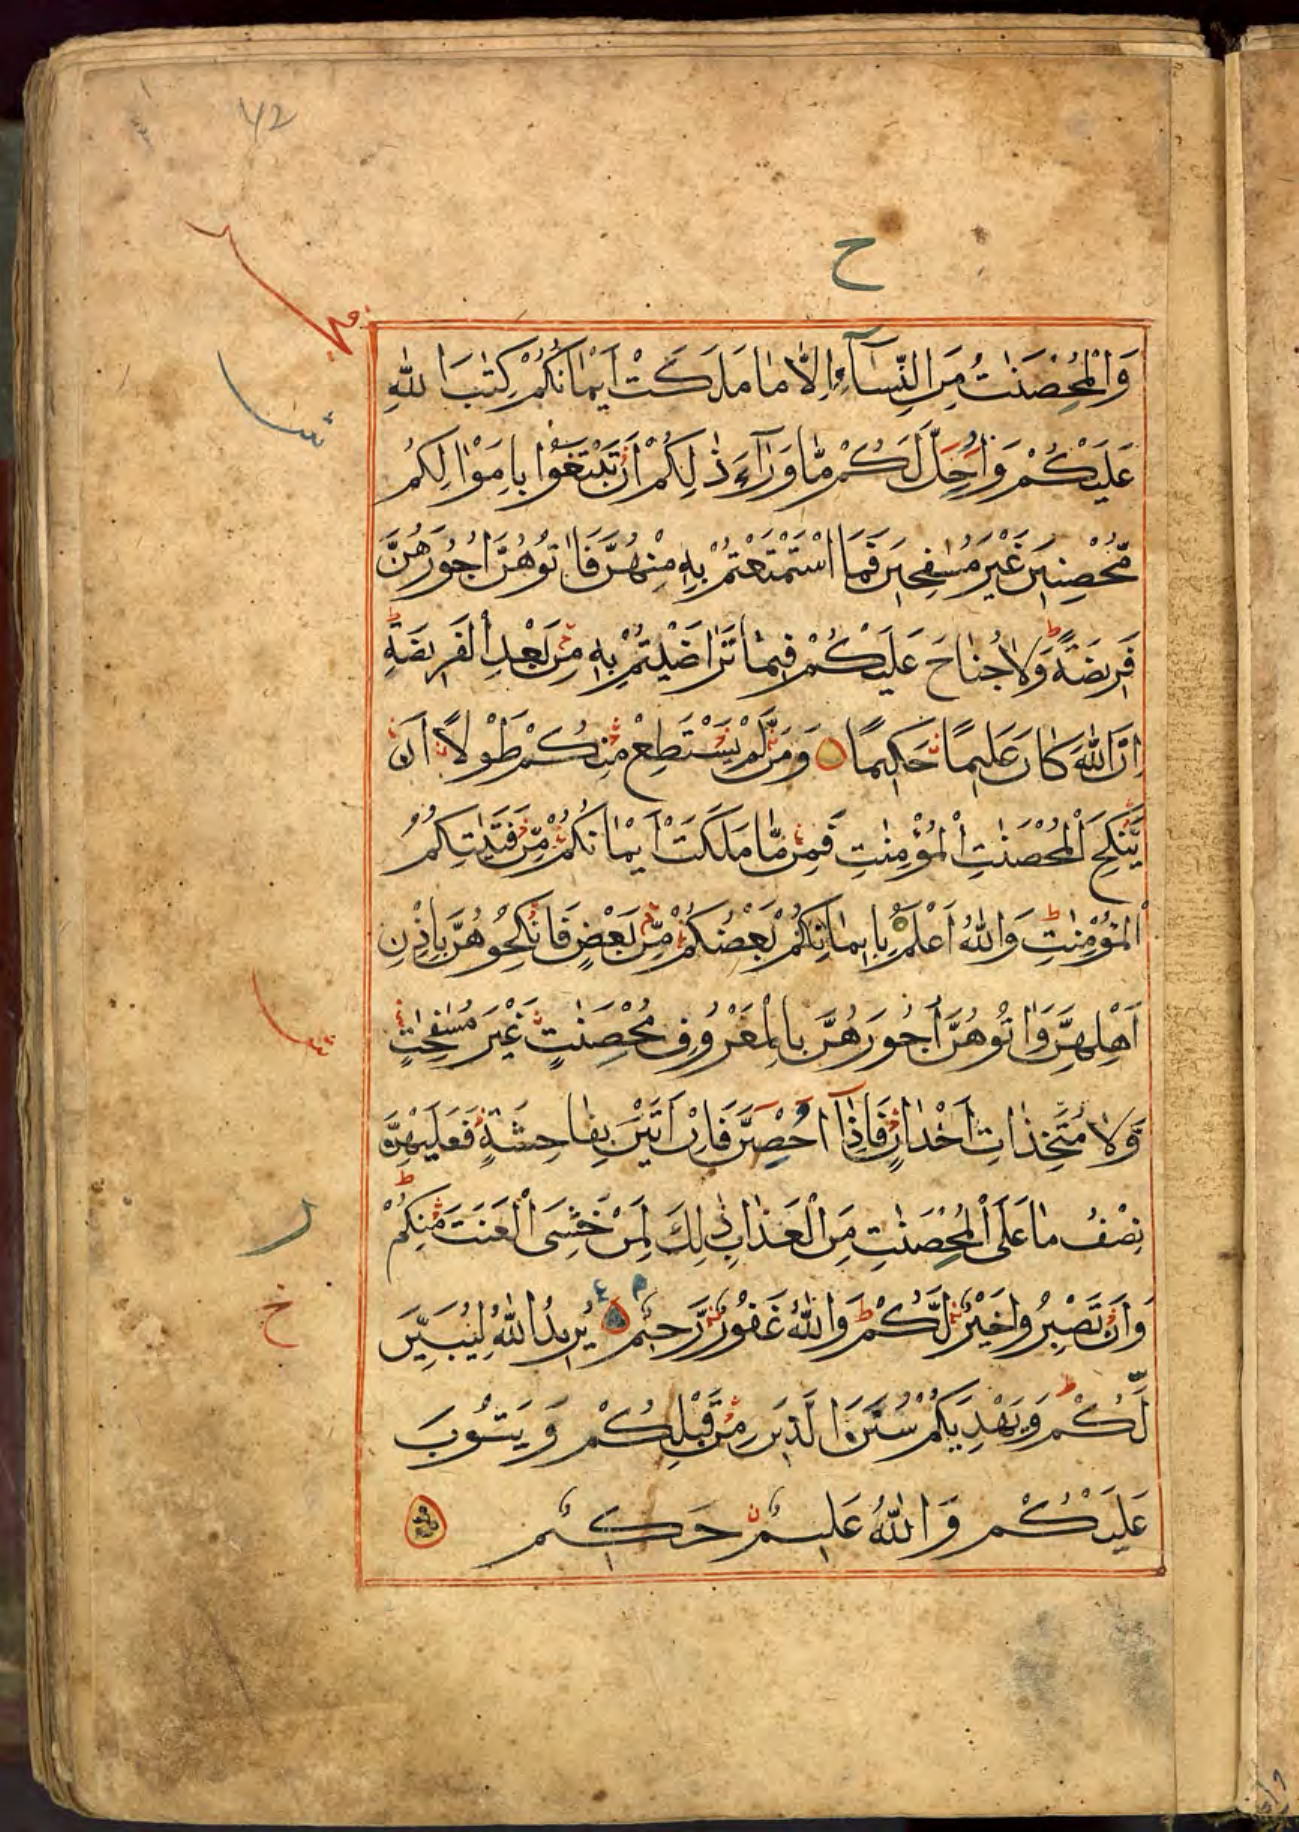 ح
وَالْمُحْصَنٰتُ مِنَ النِّسَآءِ اِلَّا مَا مَلَكَتْ اَيْمَانُكُمْ كِتٰبَ اللّٰهِ
عَلَيْكُمْ وَاُحِلَّ لَكُمْ مَّا وَرَآءَ ذٰلِكُمْ اَنْ تَبْتَغُوْا بِاَمْوَالِكُمْ
مُّحْصِنِيْنَ غَيْرَ مُسٰفِحِيْنَ فَمَا اسْتَمْتَعْتُمْ بِهٖ مِنْهُنَّ فَاٰتُوْهُنَّ اُجُوْرَهُنَّ
فَرِيْضَةً وَلَا جُنَاحَ عَلَيْكُمْ فِيْمَا تَرَاضَيْتُمْ بِهٖ مِنْ بَعْدِ الْفَرِيْضَةِ
اِنَّ اللّٰهَ كَانَ عَلِيْمًا حَكِيْمًا وَمَنْ لَّمْ يَسْتَطِعْ مِنْكُمْ طَوْلًا اَنْ
يَّنْكِحَ الْمُحْصَنٰتِ الْمُؤْمِنٰتِ فَمِنْ مَّا مَلَكَتْ اَيْمَانُكُمْ مِّنْ فَتَيٰتِكُمُ
الْمُؤْمِنٰتِ وَاللّٰهُ اَعْلَمُ بِاِيْمَانِكُمْ بَعْضُكُمْ مِّنْ بَعْضٍ فَانْكِحُوْهُنَّ بِاِذْنِ
اَهْلِهِنَّ وَاٰتُوْهُنَّ اُجُوْرَهُنَّ بِالْمَعْرُوْفِ مُحْصَنٰتٍ غَيْرَ مُسٰفِحٰتٍ
وَّلَا مُتَّخِذَاتِ اَخْدَانٍ فَاِذَآ اُحْصِنَّ فَاِنْ اَتَيْنَ بِفَاحِشَةٍ فَعَلَيْهِنَّ
نِصْفُ مَا عَلَى الْمُحْصَنٰتِ مِنَ الْعَذَابِ ذٰلِكَ لِمَنْ خَشِيَ الْعَنَتَ مِنْكُمْ
وَاَنْ تَصْبِرُوْا خَيْرٌ لَّكُمْ وَاللّٰهُ غَفُوْرٌ رَّحِيْمٌ يُرِيْدُ اللّٰهُ لِيُبَيِّنَ
لَكُمْ وَيَهْدِيَكُمْ سُنَنَ الَّذِيْنَ مِنْ قَبْلِكُمْ وَيَتُوْبَ
عَلَيْكُمْ وَاللّٰهُ عَلِيْمٌ حَكِيْمٌ